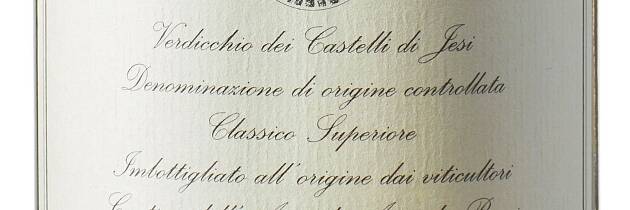 Verdicchio dei Castelli di Jesi
Denominazione di origine controllata
Classico Superiore
Imbottigliato all'origine dai viticultori